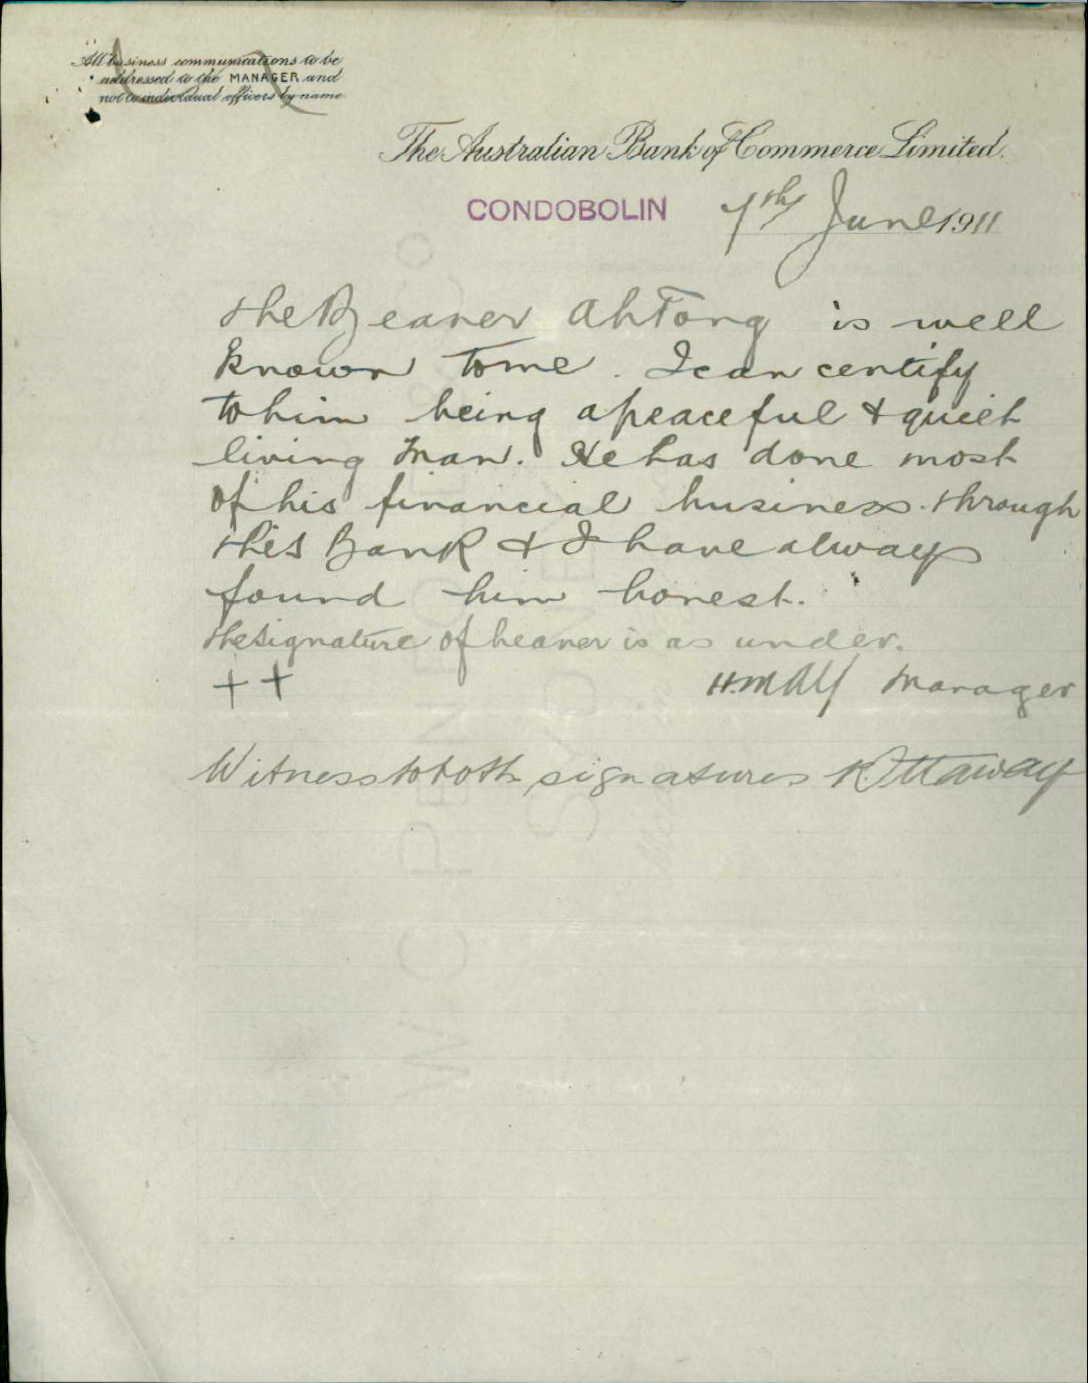 All business communications to be
addressed to the MANAGER and
not to individual officers by name
The Australian Bank of Commerce Limited.
CONDOBOLIN 7th June 1911
The Bearer Ah Tong is well
known to me. I can certify
to him being a peaceful & quiet
living man. He has done most
of his financial business through
this Bank & I have always
found him honest.
The signature of bearer is as under.
++ Manager
Witness to both signatures Ottaway